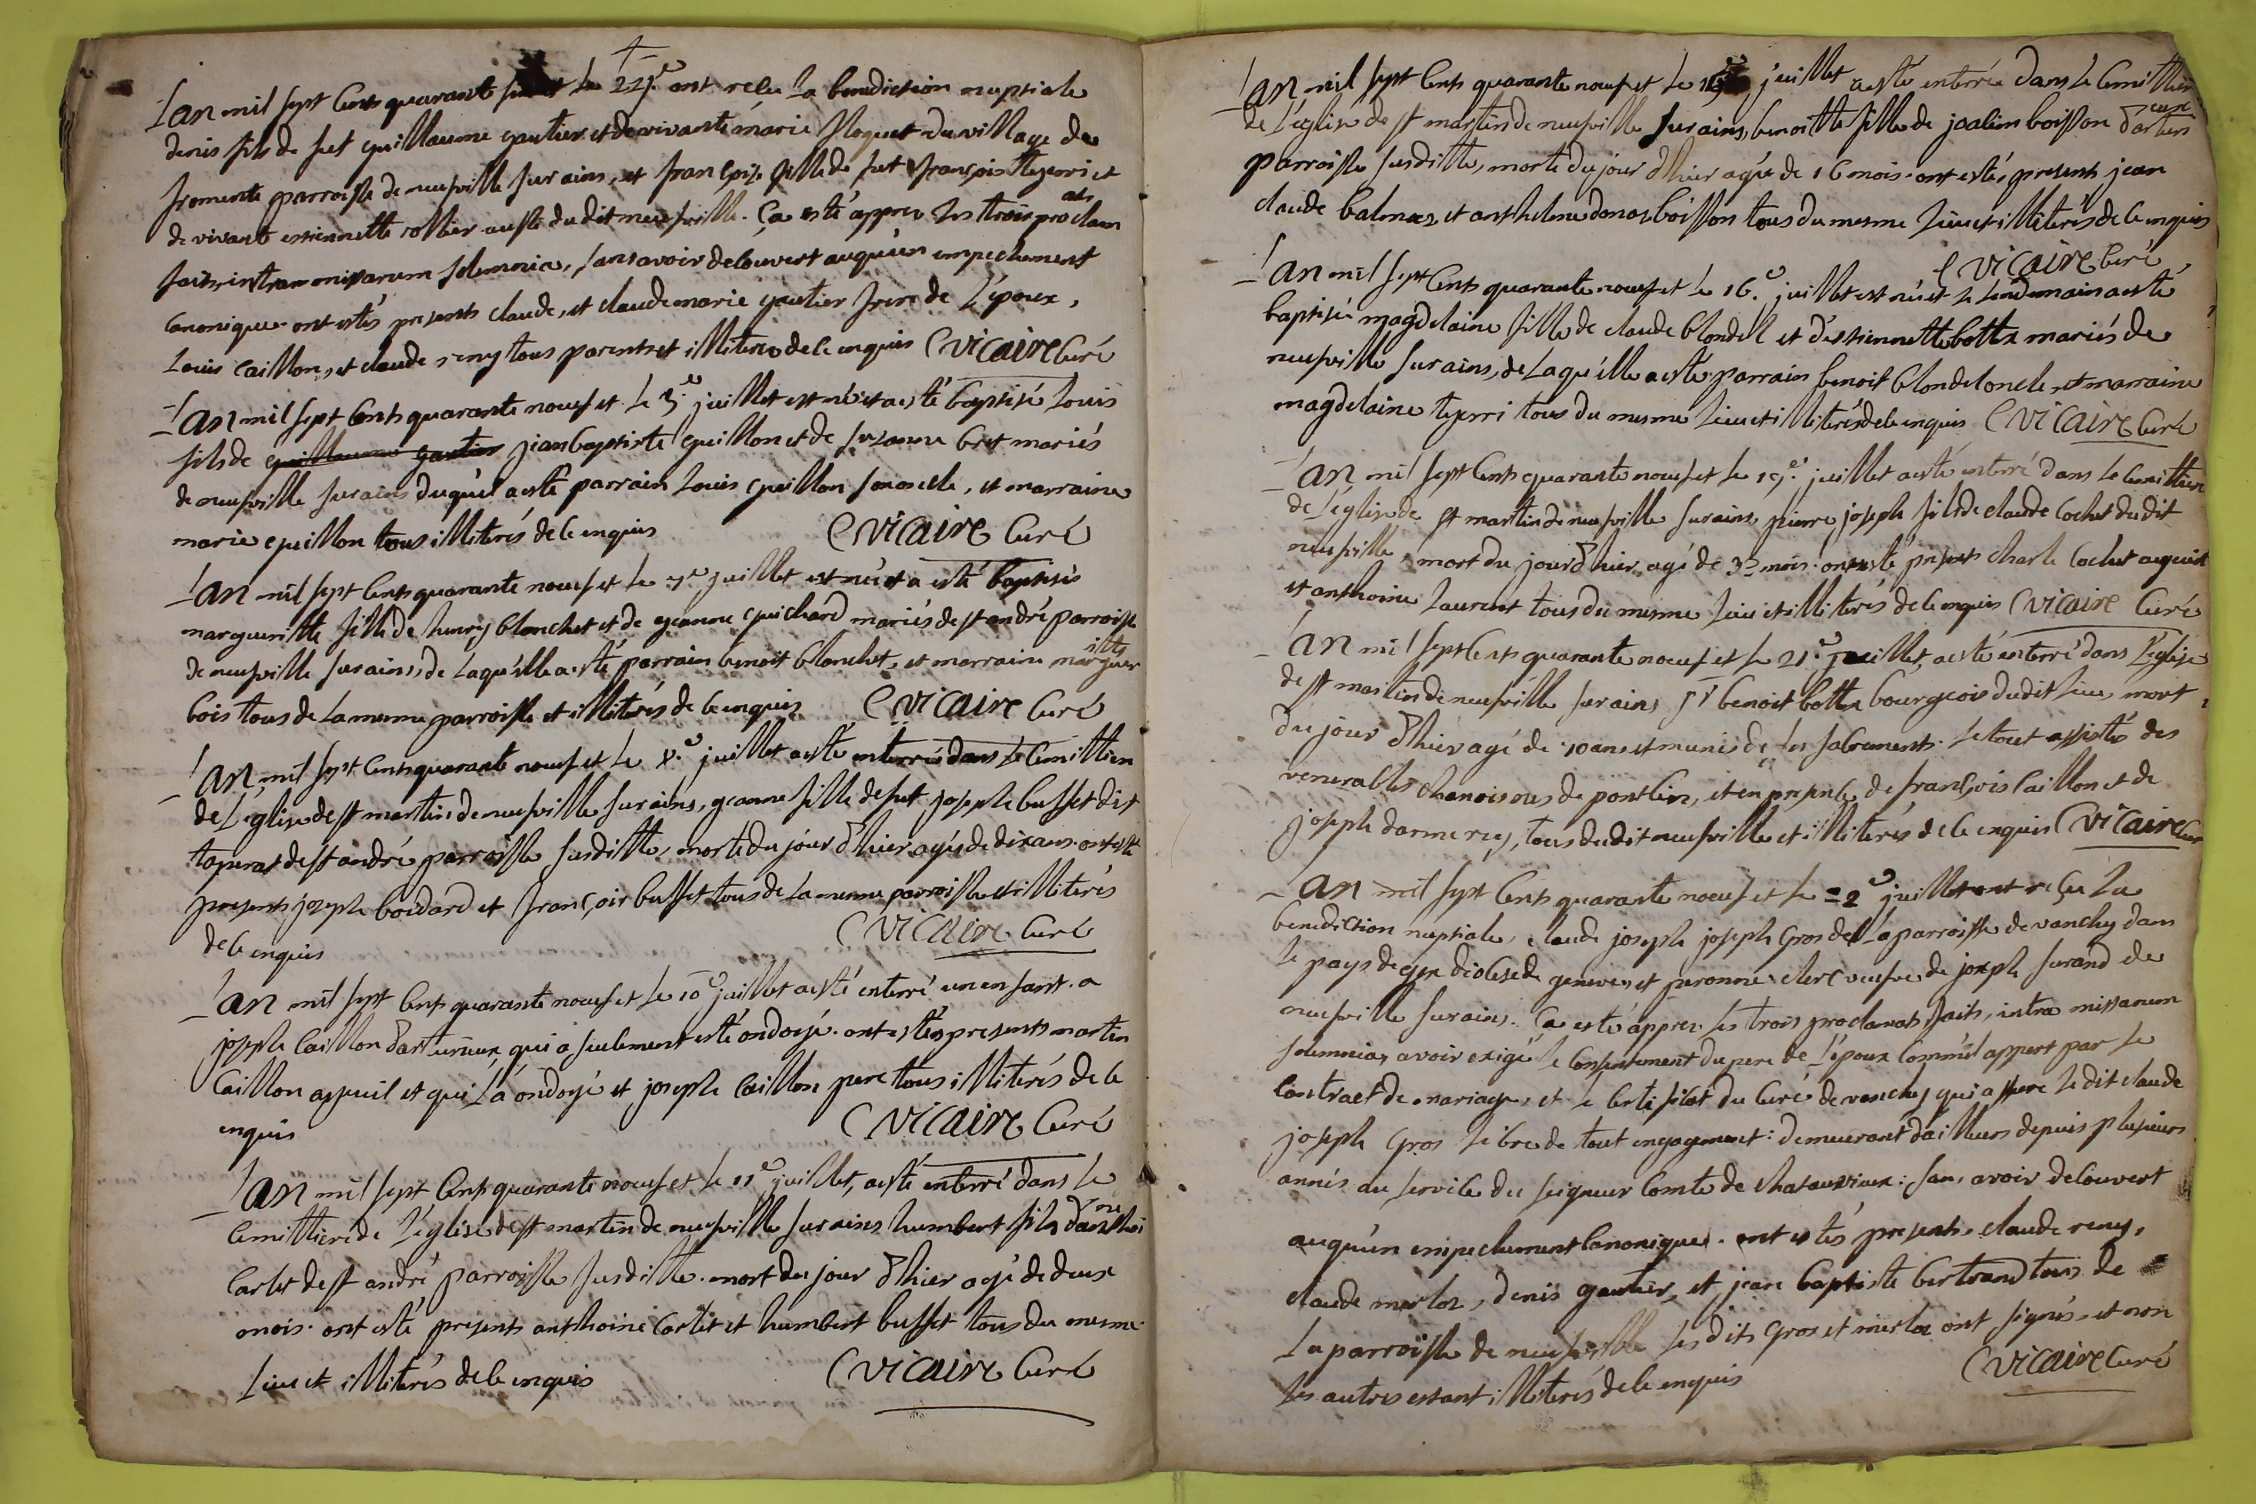 Lan mil sept Cents quarante et le 22e. ont recu La benediction nuptiale
denis fils de fut guillaume gautier et de vivante marie floquet du village de
fromente parroisse de neufville surains, et françoise fille de fut françois tezerri et
de vivante estiennette rollier aussi dudit neufville. Ça esté apprez Les trois proclam
ats
faits intra missarum solemnia, sans avoir decouvert auquun empechement
Canonique ont estés presents claude, et claude marie gautier frere de L'époux,
Louis Caillon, et claude reny tous parents et illiterés de ce enquis C Vicaire Curé
Lan mil sept Cents quarante noeuf et le 3.e juillet est né et a esté baptisé Louis
fils de guillaume gautier jean baptiste guillon et de suzanne bret mariés
de neufville surains duquel a esté parrain Louis guillon son oncle, et marraine
marie guillon tous illiterés de ce enquis C Vicaire Curé
Lan mil sept Cents quarante noeuf et le 7e juillet est née et a esté baptisés
margueritte fille de henry blanchet et de jeanne guichard mariés de st andré parroisse
de neufville surains, de Laquélle a esté parrain benoit blanchet, et marraine marguer
itte
bois tous de La meme parroisse et illiterés de ce enquis C Vicaire Curé
Lan mil sept Cents quarante noeuf et le 8.e juillet a esté enterrée dans Le Cemittier
de L'église de st martin de neufville surains, jeanne fille de fut joseph buffet dit
taperat de st andré parroisse susditte, morte du jour d'hier agée de dix ans ont esté
presents joseph boidard et françois buffet tous de La meme parroisse et illiterés
de ce enquis C Vicaire Curé
Lan mil sept Cents quarante noeuf et le 10e juillet a esté enterré un enfant a
joseph Caillon d'arturieux, qui a seulement esté ondoyé. ont estés presents martin
Caillon ayeuil et qui L'a ondoyé et joseph Caillon pere tous illiterés de ce
enquis C Vicaire Curé
Lan mil sept Cents quarante noeuf et le 11e juillet, a esté enterré dans Le
Cemittiere de L'église de st martin de neufville surains humbert fils d'anthoi
ne
Carlet de st andré parroisse susditte. mort du jour d'hier agé de deux
mois. ont esté presents anthoine Carlet et humbert buffet tous du mesme
Lieu et illiterés de ce enquis C Vicaire Curé
Lan mil sept Cents quarante noeuf et Le juillet a esté enterrée dans Le Cemittier
de L'église de st martin de neufville surains, benoitte fille de joachim boisson d'arturi
eux
parroisse susditte, morte du jour d'hier agée de 16 mois. ont estés presents jean
claude balmas, et anthelme donas boisson tous du mesme Lieu et illiterés de ce enquis
C Vicaire Curé
Lan mil sept Cents quarante noeuf et Le 16.e juillet est née et Le Lendemain a esté
baptisée magdelaine fille de claude blondel et d'estiennette bottex mariés de
neufville surains, de Laquélle a esté parrain benoit blondel oncle, et marraine
magdelaine tezerri tous du mesme Lieu et illiterés de ce enquis C Vicaire Curé
Lan mil sept Cents quarante noeuf et Le 19.e juillet a esté enterré dans Le Cemittier
de L'église de st martin de neufville surains, pierre joseph fils de claude Cochet du dit
neufville, mort du jour d'hier, agé de 3 mois. ont esté presents charle Cochet
et anthoine Laurent tous du mesme Lieu et illiterés de ce enquis C Vicaire Curé
Lan mil sept Cents quarante noeuf et Le 21.e juillet, a esté enterré dans L'église
de st martin de neufville surains, sr benoit bottex bourgeois dudit Lieu, mort
du jour d'hier agé de 50 ans et munis de Ses sacrements. Le tout assistés des
venerables chanoisnes de pontcin, et en presence de françois Caillon et de
joseph dannerey, tous dudit neufville et illiterés de ce enquis C Vicaire Curé
Lan mil sept Cents quarante noeuf et Le 22e juillet ont reçu La
benediction nuptiale, claude joseph joseph Gros de La parroisse de vanchy dans
Le pays de gex diocese de geneve, et peronne clerc veufve de joseph furand de
neufville surains. Ça esté apprez Les trois proclamats faits, intra missarum
solemnia, avoir exigé Le Consentement du pere de L'époux Comme il appert par Le
Contract de mariage, et Le Certificat du Curé de vanchy qui assure Le dit claude
joseph Gros Libre de tout engagement: demeurant d'ailleurs depuis plusieurs
annés au service du seigneur Comte de chateauvieux: sans avoir decouvert
auquun empechement Canonique. ont estés presents claude reny,
claude merloz, denis gautier, et jean baptiste bertrand tous de
La parroisse de neufville Les dits Gros et merloz ont signés, et non
Les autres estant illiterés de ce enquis C Vicaire Curé